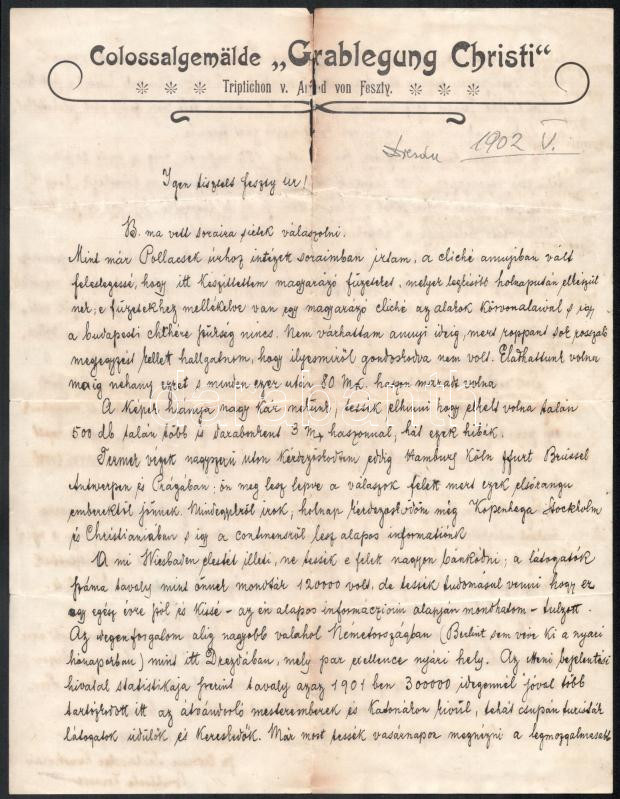 Colossalgemälde „Grablegung Christi“
Triptichon v. Arpád von Feszty.
1902 V.
Igen tisztelt Feszty Ur!
B. ma vett soraira sietek válaszolni.
Mint már Pollacsek úrhoz intézett soraimban irtam, a cliché annyiban vált
feleslegessé, hogy itt készíttettem magyarázó füzeteket, melyek legkésőbb holnapután elkészül
nek; e füzetekhez mellékelve van egy magyarázó cliché az alakok körvonalaival s így
a budapesti szükség nincs. Nem várhattam annyi ideig, mert roppant sok rosszaló
megjegyzést kellett hallgatnom, hogy ilyesmiről gondoskodva nem volt. Eladhattunk volna
máig nehány ezret s minden ezer után 80 Mk. haszon maradt volna
A képek hiánya nagy kár nekünk, tessék elhinni hogy elkelt volna talán
500 db talán több is darabonként 3 Mk haszonnal, hát ezek hibák.
Termek végett nagyszerű uton kérdezősködtem eddig Hamburg Köln Ffurt Brüssel
Antwerpen és Prágában; ön meg lesz lepve a válaszok felett mert ezek elsőrangu
emberektől jönnek. Mindegyikről irok; holnap kérdezősködöm még Kopenhega Stockholm
és Christianiában s így a continensről lesz alapos informatiónk
A mi Wiesbaden elestét illeti, ne tessék e felett nagyon bánkódni; a látogatók
száma tavaly mint önnek mondták 120000 volt, de tessék tudomásul venni hogy ez
egy egész évre szól és kissé – az én alapos információim alapján mondhatom – tulzott.
Az idegenforgalom alig nagyobb valahol Németországban (Berlint sem véve ki a nyári
hónapokban) mint itt Drezdában, mely par excellence nyári hely. Az itteni bejelentési
hivatal statistikája szerint tavaly azaz 1901 ben 300000 idegennél jóval több
tartózkodott itt az átvándorló mesteremberek és katonákon kívül, tehát csupán turisták
látogatók üdülők és kereskedők. Már most tessék vasárnapon megnézni a legmozgalmasabb